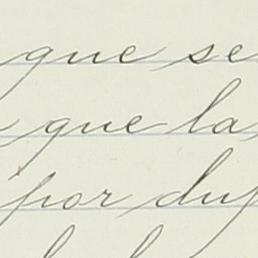 que se
que la
por dup